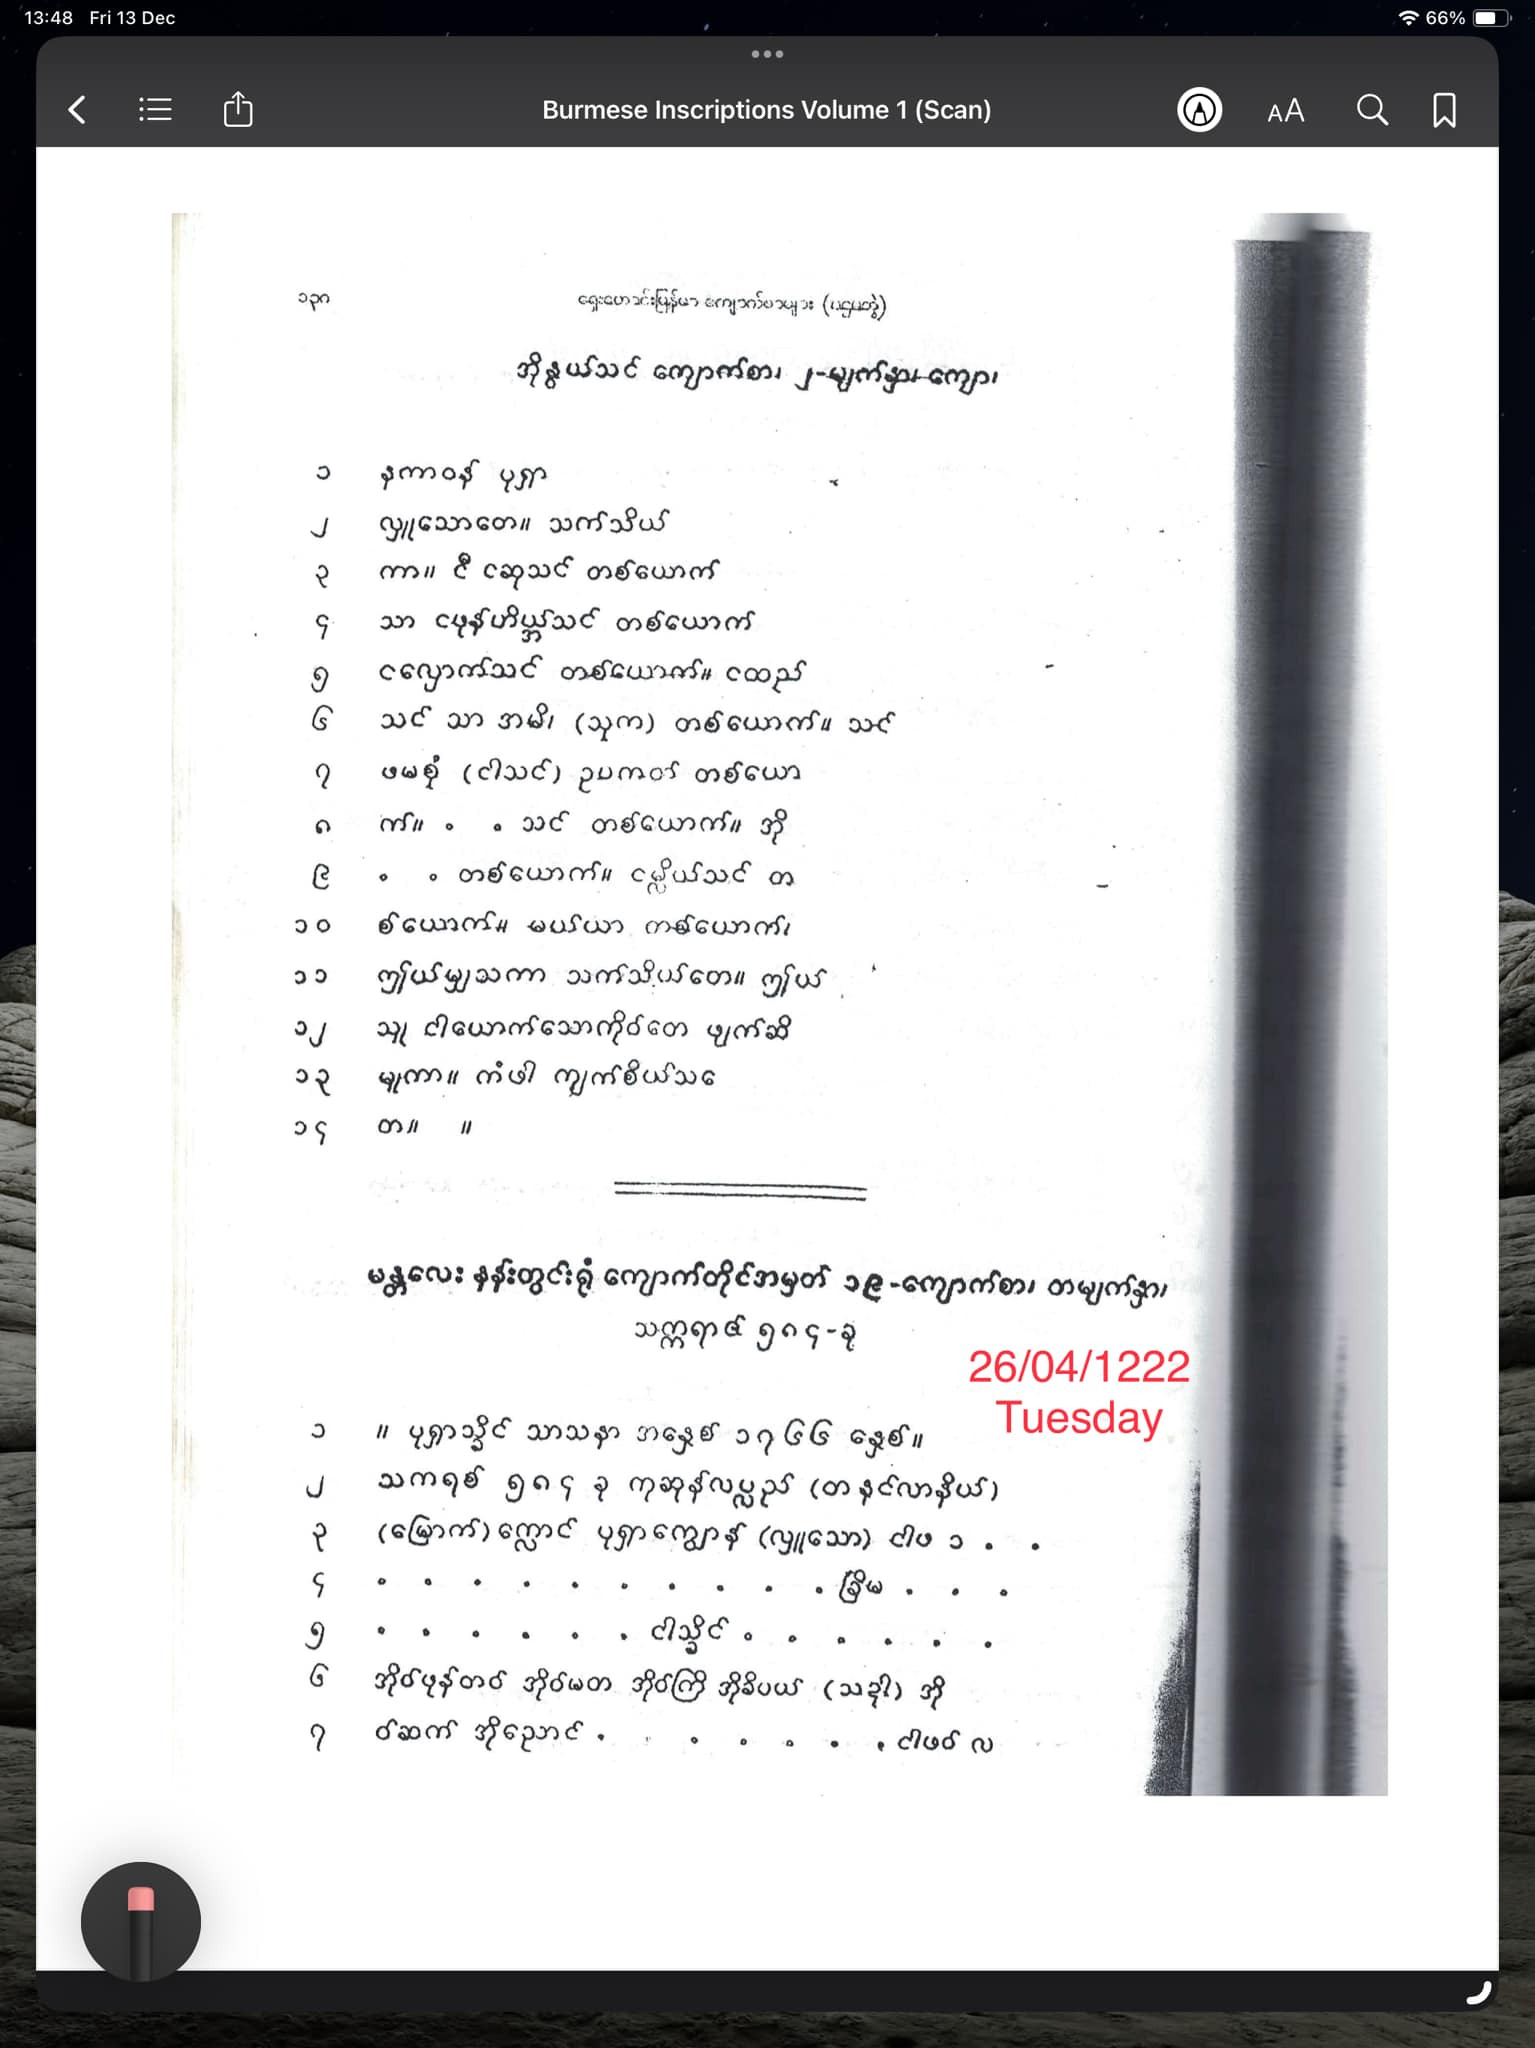 13:48 Fri 13 Dec
66%
Burmese Inscriptions Volume 1 (Scan)
AA
၁၃၈ ရှေးဟောင်းမြန်မာ ကျောက်စာများ (ပဌမတွဲ)
အိုနွယ်သင် ကျောက်စာ၊ ၂-မျက်နှာ၊ ကျော၊
၁ နကာဝန် ပုရှာ
၂ လှူသောတေ။ သက်သိယ်
၃ ကာ။ ငီ ငဆုသင် တစ်ယောက်
၄ သာ ငဖုန်ဟိယ္အ်သင် တစ်ယောက်
၅ ငလှောက်သင် တစ်ယောက်။ ငထည်
၆ သင် သာ အမိ၊ (သုက) တစ်ယောက်။ သင်
၇ ဖမစုံ (ငါသင်) ဥပကတ် တစ်ယော
၈ က်။ ၀ ၀ သင် တစ်ယောက်။ အို
၉ ၀ ၀ တစ်ယောက်။ ငမ္လိယ်သင် တ
၁၀ စ်ယောက်။ မယ်ယာ တစ်ယောက်၊
၁၁ ဤယ်မျှသကာ သက်သိယ်တေ။ ဤယ်
၁၂ သူ ငါယောက်သောကိုဝ်တေ ဖျက်ဆီ
၁၃ မူကာ။ ကံဖါ ကျက်စိယ်သ
၁၄ တ။ ။
မန္တလေး နန်းတွင်းရုံ ကျောက်တိုင်အမှတ် ၁၉-ကျောက်စာ၊ တမျက်နှာ၊
သက္ကရာဇ် ၅၈၄-ခု
26/04/1222
Tuesday
၁ ။ ပုရှာသ္ခိင် သာသနာ အနှေစ် ၁၇၆၆ နှေစ်။
၂ သကရစ် ၅၈၄ ခု ကုဆုန်လပ္လည် (တနင်လာနိယ်)
၃ (မြောက်) က္လောင် ပုရှာကျွောန် (လှူသော) ငါဖ ၁ . .
၄ . . . . . . . . . . ခြိမ . . .
၅ . . . . . . ငါသ္ခိင် . . . . . .
၆ အိုဝ်ဖုန်တဝ် အိုဝ်မတ အိုဝ်ကြိ အိုခိပယ် (သဒ္ဓါ) အို
၇ ဝ်ဆက် အိုညောင် . . . . . . . ငါဖဝ် လ